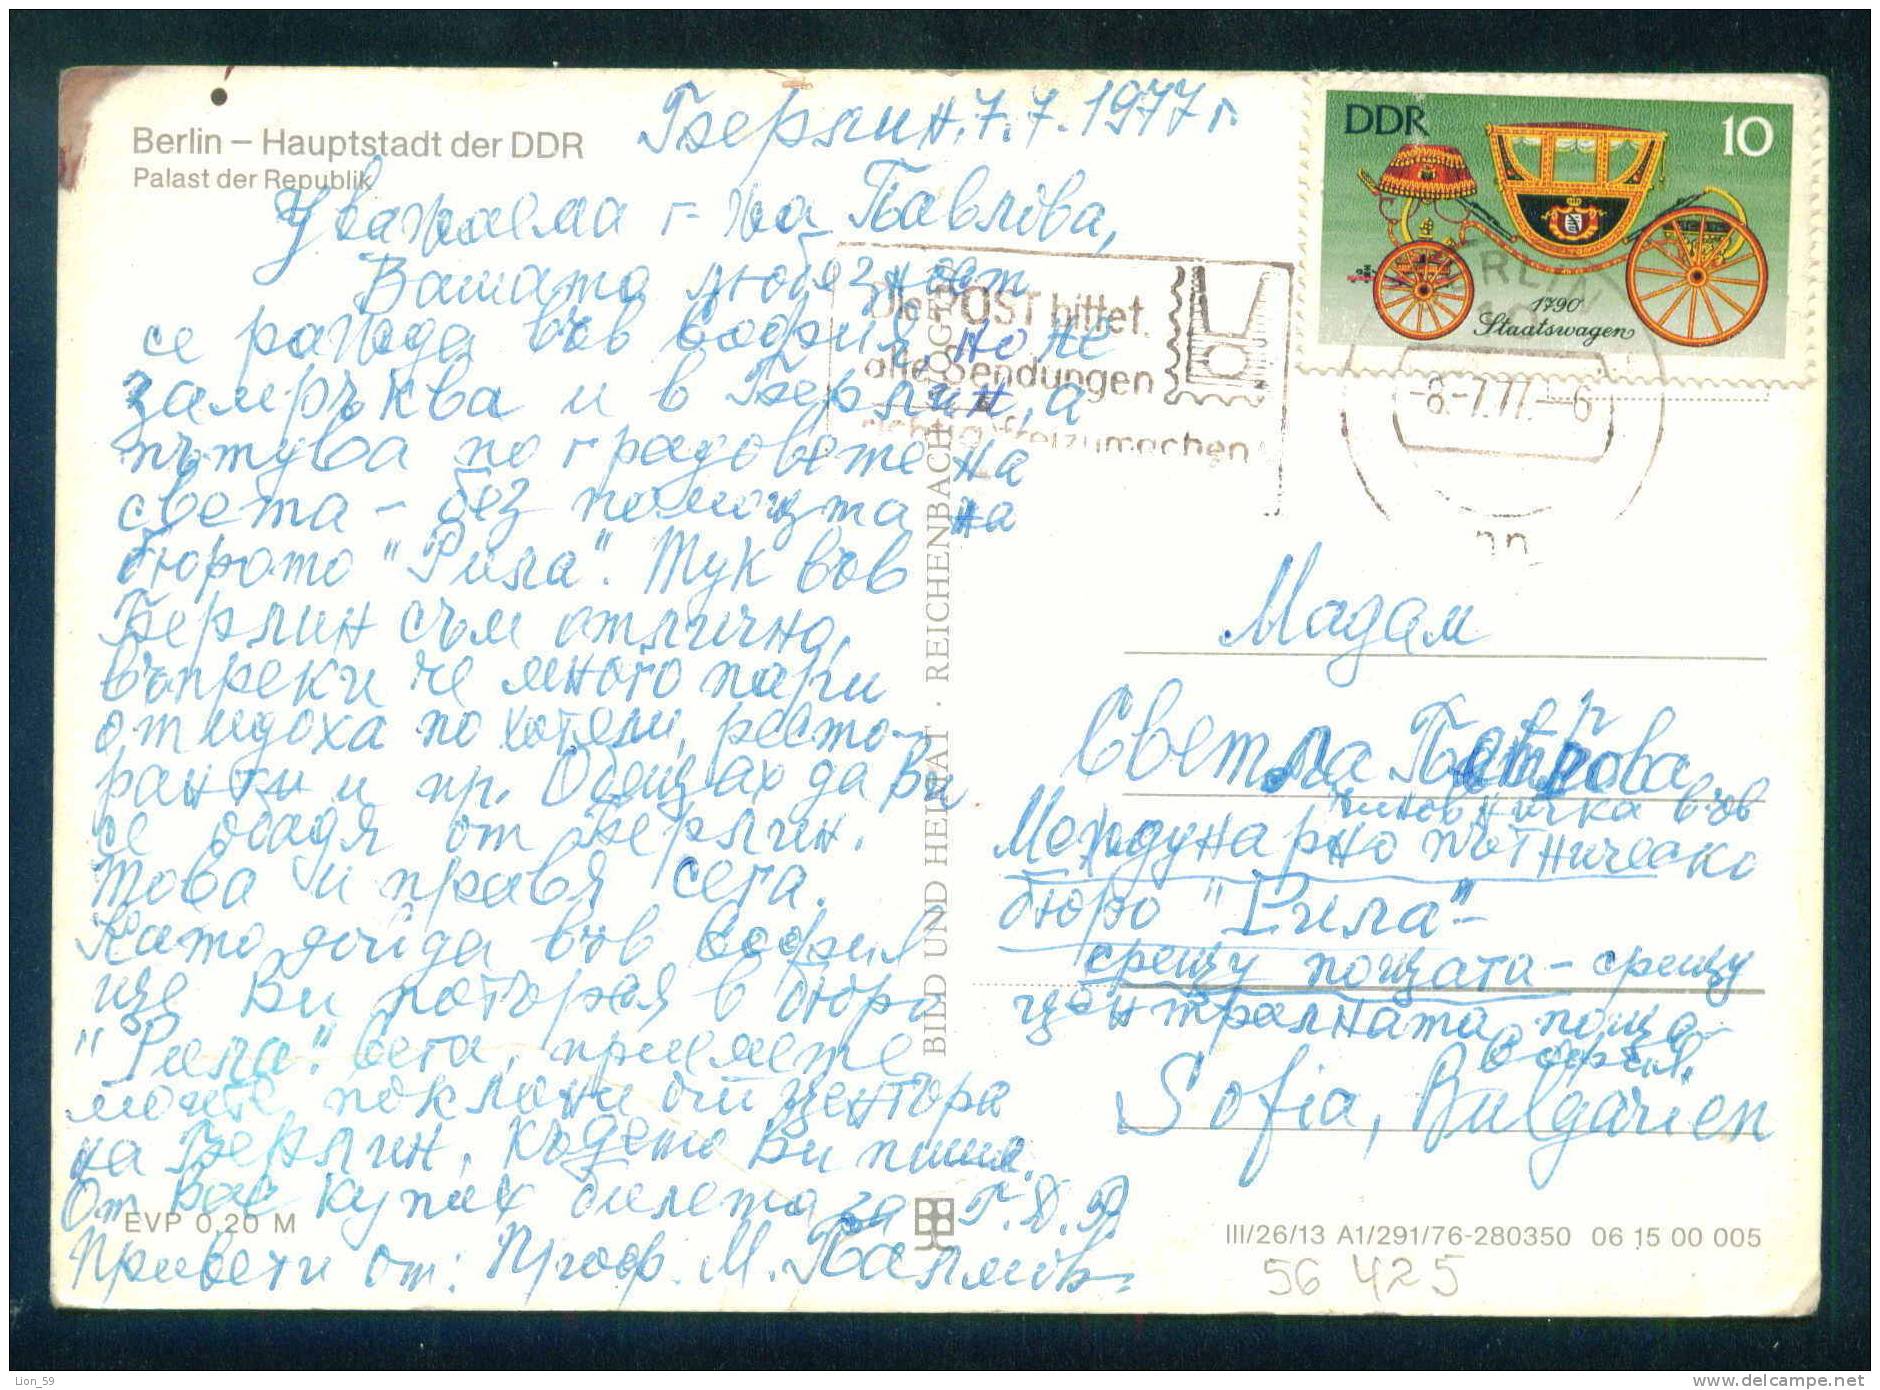 Berlin – Hauptstadt der DDR
Palast der Republik
Берлин, 7.7.1977 г.
Уважаема г-жа Павлова,
Вашата любезност
се ражда във София, но не
замръква и в Берлин, а
пътува по градовете на
света – без помощта на
бюрото "Рила". Тук във
Берлин съм отлично,
въпреки че много пари
отидоха по хотели, ресто-
ранти и пр. Обещах да Ви
се обадя от Берлин.
Това и правя сега.
Като дойда във София
ще Ви потърся в бюро
"Рила". Сега, приемете
моите поклони от центъра
на Берлин, където Ви пиша.
От Вас купих билета за Г.Д.Р.
Привети от: Проф. М.
EVP 0,20 M
BILD UND HEIMAT · REICHENBACH
DDR
10
1790
Staatswagen
Die POST bittet,
alle Sendungen
richtig freizumachen
BERLIN
-8.-7.77.--6
Мадам
Светла Петрова
чиновничка във
Международно пътническо
бюро "Рила" –
срещу пощата – срещу
централната поща
София.
Sofia, Bulgarien
III/26/13 A1/291/76-280350 06 15 00 005
56 425
Lion_59
www.delcampe.net